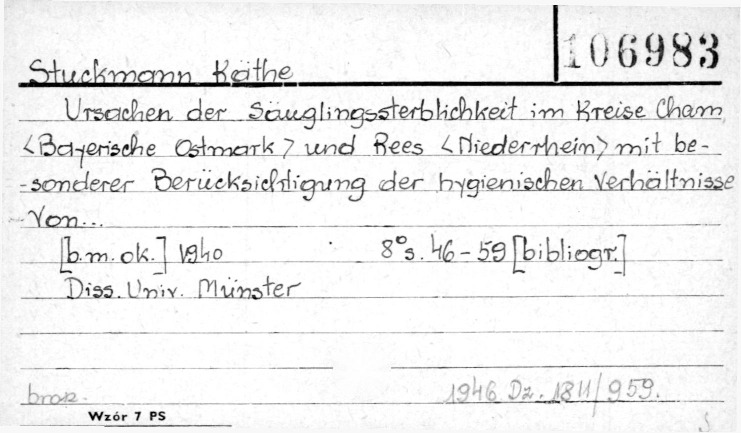 106983
Stuckmann Käthe
Ursachen der Säuglingssterblichkeit im Kreise Cham
<Bayerische Ostmark> und Rees <Niederrhein> mit be-
-sonderer Berücksichtigung der hygienischen Verhältnisse
Von...
[b.m. ok.] 1940 8° s. 46-59 [bibliogr.]
Diss. Univ. Münster
1946 Dz. 1811/959.
Wzór 7 PS